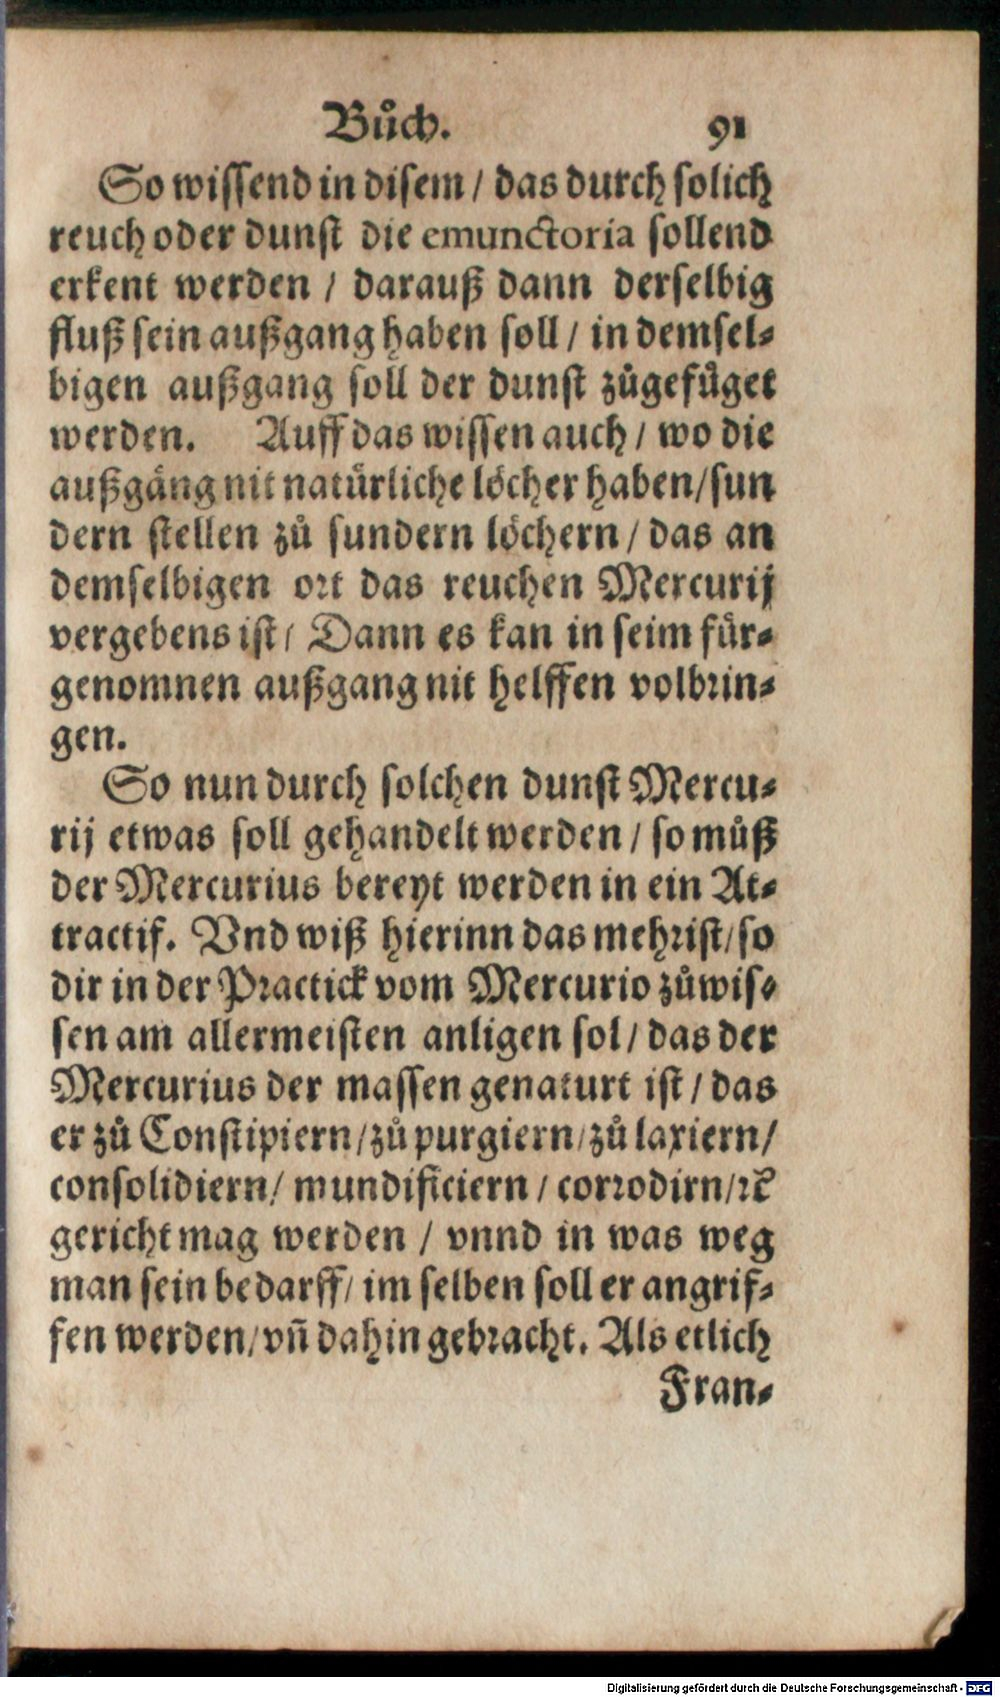 Bůch. 91
So wissend in disem / das durch solich
reuch oder dunst die emunctoria sollend
erkent werden / darauß dann derselbig
fluß sein außgang haben soll / in demsel-
bigen außgang soll der dunst zůgefůget
werden. Auff das wissen auch / wo die
außgäng nit natürliche löcher haben/sun
dern stellen zů sundern löchern / das an
demselbigen ort das reuchen Mercurij
vergebens ist / Dann es kan in seim für-
genomnen außgang nit helffen volbrin-
gen.
So nun durch solchen dunst Mercu-
rij etwas soll gehandelt werden / so můß
der Mercurius bereyt werden in ein At-
tractif. Vnd wiß hierinn das mehr ist/so
dir in der Practick vom Mercurio zůwis-
sen am allermeisten anligen sol / das der
Mercurius der massen genaturt ist / das
er zů Constipiern/zů purgiern/zů laxiern/
consolidiern/ mundificiern / corrodirn/ꝛc
gericht mag werden / vnnd in was weg
man sein bedarff/ im selben soll er angrif-
fen werden/vñ dahin gebracht. Als etlich
Fran-
Digitalisierung gefördert durch die Deutsche Forschungsgemeinschaft - DFG